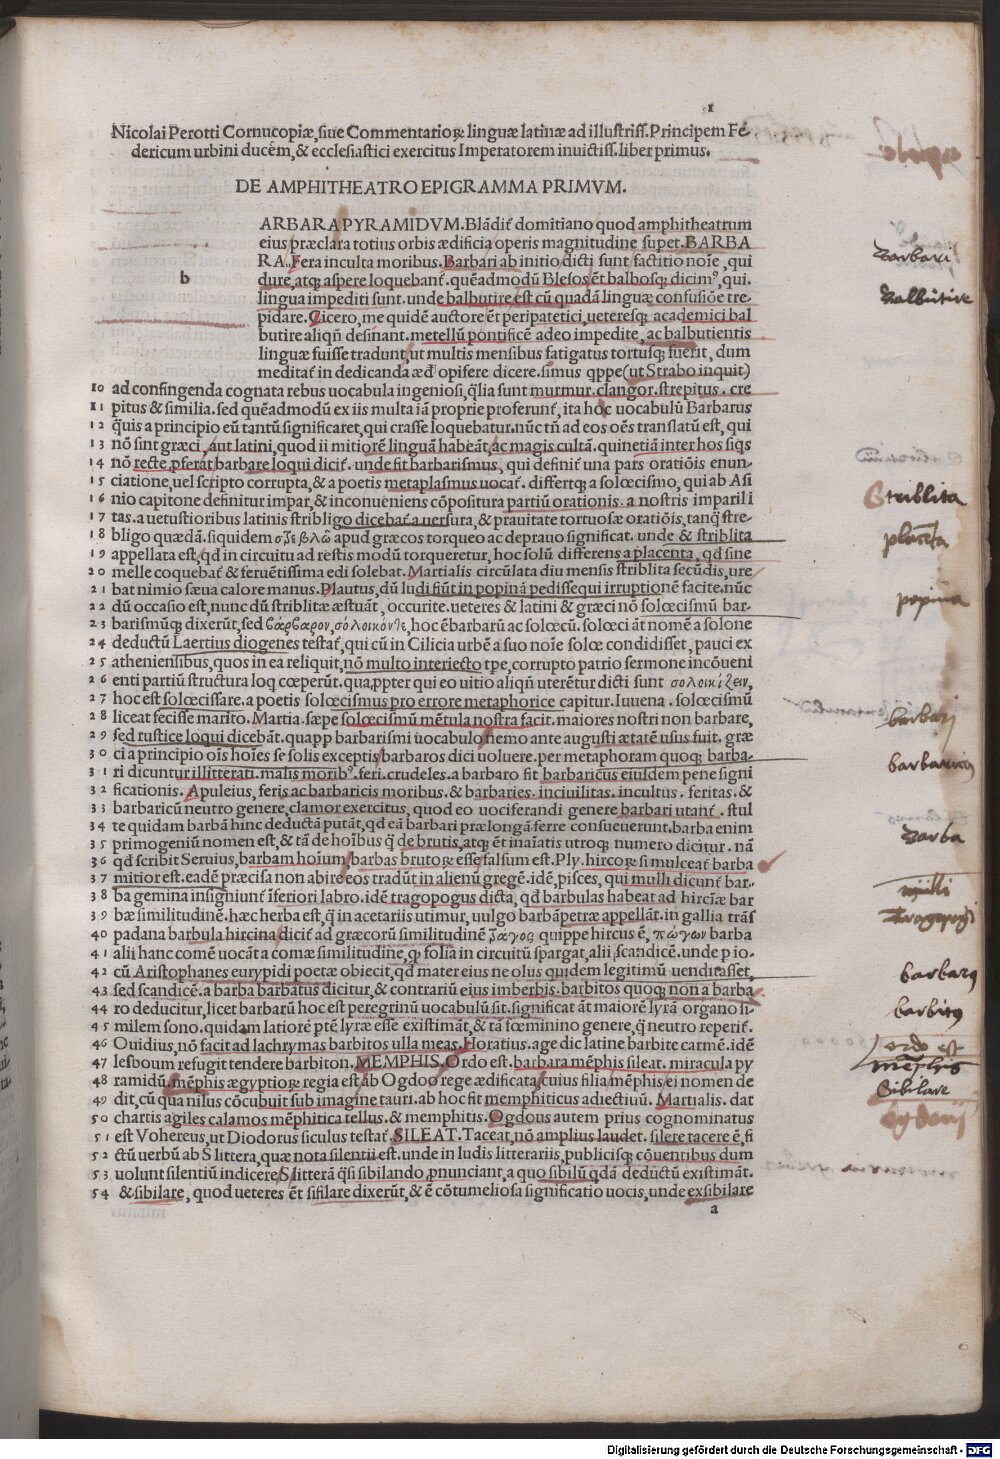 1
Nicolai Perotti Cornucopiæ, siue Commentarioꝝ linguæ latinæ ad illustriss. Principem Fe-
dericum urbini ducem, & ecclesiastici exercitus Imperatorem inuictiss. liber primus.
DE AMPHITHEATRO EPIGRAMMA PRIMVM.
ARBARA PYRAMIDVM. Blādit̃ domitiano quod amphitheatrum
eius præclara totius orbis ædificia operis magnitudine super. BARBA
RA. Fera inculta moribus. Barbari ab initio dicti sunt factitio noīe, qui
b
dure, atq; aspere loquebant̃. quēadmodū Blesos ēt balbosq; dicim⁹, qui
lingua impediti sunt. unde balbutire est cū quadā linguæ confusiōe tre-
pidare. Cicero, me quidē auctore ēt peripatetici, ueteresq; academici bal
butire aliqñ desināt. metellū pontificē adeo impedite, ac balbutientis
linguæ fuisse tradunt, ut multis mensibus fatigatus tortusq; fuerit, dum
meditat̃ in dedicanda æde opiferæ dicere. simus qppe (ut Strabo inquit)
10 ad confingenda cognata rebus uocabula ingeniosi, q̃lia sunt murmur. clangor. strepitus. cre
11 pitus & similia. sed quēadmodū ex iis multa iā proprie proferunt̃, ita hoc uocabulū Barbarus
12 q̃uis a principio eū tantū significaret, qui crasse loquebatur. nūc tñ ad eos oēs translatū est, qui
13 nō sint græci, aut latini, quod ii mitiorē linguā habeāt, ac magis cultā. quinetiā inter hos siqs
14 nō recte ꝓferat barbare loqui dicit̃. unde fit barbarismus, qui definit̃ una pars oratiōis enun-
15 ciatione, uel scripto corrupta, & a poetis metaplasmus uocat̃. differtq; a solœcismo, qui ab Asi
16 nio capitone definitur impar, & inconueniens cōpositura partiū orationis. a nostris imparili
17 tas. a uetustioribus latinis stribligo dicebat̃ a uersura, & prauitate tortuosæ oratiōis, tanq̃ stre-
18 bligo quædā. siquidem σρεβλῶ apud græcos torqueo ac deprauo significat. unde & striblita
19 appellata est, qd in circuitu ad restis modū torqueretur, hoc solū differens a placenta, qd sine
20 melle coquebat̃ & feruētissima edi solebat. Martialis circūlata diu mensis striblita secūdis, ure
21 bat nimio sæua calore manus. Plautus, dū ludi fiūt in popinā pedissequi irruptionē facite. nūc
22 dū occasio est, nunc dū striblitæ æstuāt, occurite. ueteres & latini & græci nō solœcismū bar-
23 barismūq; dixerūt, sed βάρβαρον, σόλοικόντε, hoc ē barbarū ac solœcū. solœci āt nomē a solone
24 deductū Laertius diogenes testat̃, qui cū in Cilicia urbē a suo noīe solœ condidisset, pauci ex
25 atheniensibus, quos in ea reliquit, nō multo interiecto tpe, corrupto patrio sermone incōueni
26 enti partiū structura loq cœperūt. qua, ppter qui eo uitio aliqñ uterētur dicti sunt σολοικίζειν,
27 hoc est solœcissare. a poetis solœcismus pro errore metaphorice capitur. Iuuena. solœcismū
28 liceat fecisse marito. Martia. sæpe solœcismū mētula nostra facit. maiores nostri non barbare,
29 sed rustice loqui dicebāt. quapp barbarismi uocabulo nemo ante augusti ætatē usus fuit. græ
30 ci a principio oīs hoīes se solis exceptis barbaros dici uoluere. per metaphoram quoq; barba-
31 ri dicuntur illitterati. malis morib⁹. feri. crudeles. a barbaro fit barbaricus eiusdem pene signi
32 ficationis. Apuleius, feris ac barbaricis moribus. & barbaries. inciuilitas. incultus. feritas. &
33 barbaricū neutro genere, clamor exercitus, quod eo uociferandi genere barbari utant̃. stul
34 te quidam barbā hinc deductā putāt, qd eā barbari prælongā ferre consueuerunt. barba enim
35 primogeniū nomen est, & tā de hoībus q̃ de brutis, atq; ēt inaīatis utroq; numero dicitur. nā
36 qd scribit Seruius, barbam hoīum, barbas brutoꝝ esse falsum est. Ply. hircoꝝ si mulceat̃ barba
37 mitior est. eadē præcisa non abire eos tradūt in alienū gregē. idē, pisces, qui mulli dicunt̃ bar-
38 ba gemina insigniunt̃ īferiori labro. idē tragopogus dicta, qd barbulas habeat ad hirciæ bar
39 bæ similitudinē. hæc herba est, q̃ in acetariis utimur, uulgo barbā petræ appellāt. in gallia trās
40 padana barbula hircina dicit̃ ad græcorū similitudinē τράγος quippe hircus ē, πώγων barba
41 alii hanc comē uocāt a comæ similitudine, qꝫ folia in circuitu spargat, alii scandicē. unde p io-
42 cū Aristophanes eurypidi poetæ obiecit, qd mater eius ne olus quidem legitimū uendirasset,
43 sed scandicē. a barba barbatus dicitur, & contrariū eius imberbis. barbitos quoq; non a barba
44 ro deducitur, licet barbarū hoc est peregrinū uocabulū sit. significat āt maiorē lyrā organo si-
45 milem sono. quidam latiorē ptē lyræ esse existimāt, & tā fœminino genere, q̃ neutro reperit̃.
46 Ouidius, nō facit ad lachrymas barbitos ulla meas. Horatius. age dic latine barbite carmē. idē
47 lesboum refugit tendere barbiton. MEMPHIS. Ordo est. barbara mēphis sileat. miracula py
48 ramidū. mēphis ægyptioꝝ regia est ab Ogdoo rege ædificata, cuius filia mēphis ei nomen de
49 dit, cū qua nilus cōcubuit sub imagine tauri. ab hoc fit memphiticus adiectiuū. Martialis. dat
50 chartis agiles calamos mēphitica tellus. & memphitis. Ogdous autem prius cognominatus
51 est Vohereus, ut Diodorus siculus testat̃. SILEAT. Taceat, nō amplius laudet. silere tacere ē, fi
52 ctū uerbū ab S littera, quæ nota silentii est. unde in ludis litterariis, publicisq; cōuentibus dum
53 uolunt silentiū indicere S litterā q̃si sibilando, pnunciant, a quo sibilū qdā deductū existimāt.
54 & sibilare, quod ueteres ēt sifilare dixerūt, & ē cōtumeliosa significatio uocis, unde exsibilare
a
Barbari
Balbutire
Striblita
placēta
popina
barbari
barbaricus
Barba
mulli
Tragopogi
barbarus
barbitus
Ordo est
mēphis
Sibilare
Digitalisierung gefördert durch die Deutsche Forschungsgemeinschaft - DFG